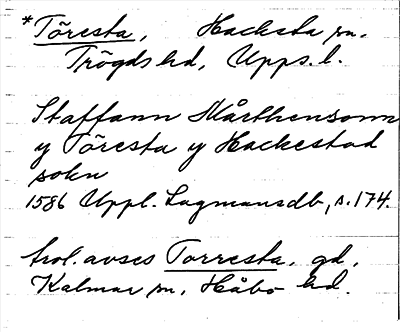 *Töresta, Hacksta sn.
Trögds hd, Upps. l.
Staffann Mårthensonn
y Töresta y Hackestad
sokn
1586 Uppl. Lagmansdb, s. 174.
trol. avses Torresta, gd,
Kalmar sn, Håbo hd.